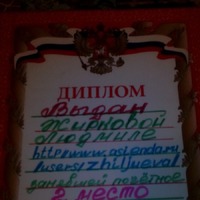 ДИПЛОМ
Выдан
Жирновой
Людмиле
http://www.aslenda.ru
/users/zhiljueva1
занявшей почётное
2 место